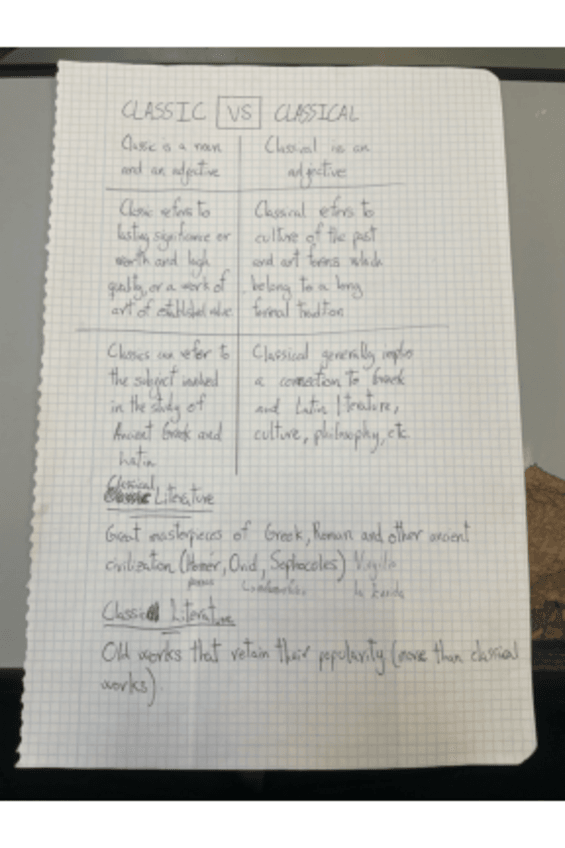 CLASSIC VS CLASSICAL
Classic is a noun
and an adjective
Classical is an
adjective
Classic refers to
lasting significance or
worth and high
quality, or a work of
art of established value
Classical refers to
culture of the past
and art forms which
belong to a long
formal tradition
Classics can refer to
the subject involved
in the study of
Ancient Greek and
Latin
Classical generally implies
a connection to Greek
and Latin literature,
culture, philosophy, etc.
Classical
Literature
Great masterpieces of Greek, Roman and other ancient
civilization (Homer, Ovid, Sophocoles) Virgilio
Classic Literature
Old works that retain their popularity (more than classical
works)